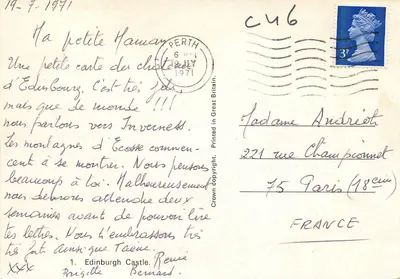 19-7-1971
Ma petite Maman
Une petite carte du château
d'Edinbourg. C'est très joli
mais que de monde !!!
nous partons vers Inverness.
Les montagnes d'Ecosse commen-
cent à se montrer. Nous pensons
beaucoup à toi. Malheureusement
nous devrons attendre deux
semaines avant de pouvoir lire
tes lettres. Nous t'embrassons très
très fort ainsi que
xxx Brigitte Bernard. René
1. Edinburgh Castle.
Crown copyright. Printed in Great Britain.
PERTH
JLY
1971
CU6
3P
Madame Andrieth
221 rue Championnet
75 Paris (18em)
FRANCE